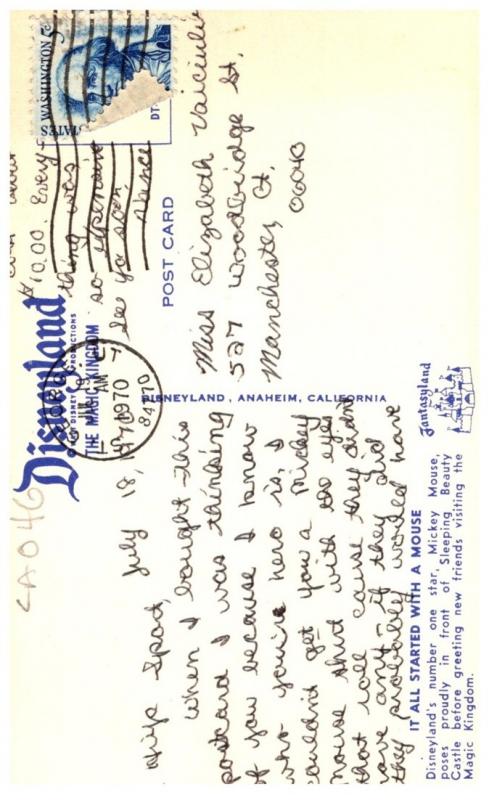 CA046
Disneyland
© WALT DISNEY PRODUCTIONS
THE MAGIC KINGDOM
AM
1970
POST CARD
DISNEYLAND, ANAHEIM, CALIFORNIA
WASHINGTON 5c
July 18,
When I bought this
postcard I was thinking
of you because I know
who you're hero is. I
couldn't get you a Mickey
Mouse shirt with the eyes
that roll cause they didn't
have any - if they did
they probably would have
cost about
$10.00. Every-
thing was
so expensive
see ya soon
Miss Elizabeth
527 Woodbridge St.
Manchester, Ct.
06040
IT ALL STARTED WITH A MOUSE
Disneyland's number one star, Mickey Mouse,
poses proudly in front of Sleeping Beauty
Castle before greeting new friends visiting the
Magic Kingdom.
Fantasyland